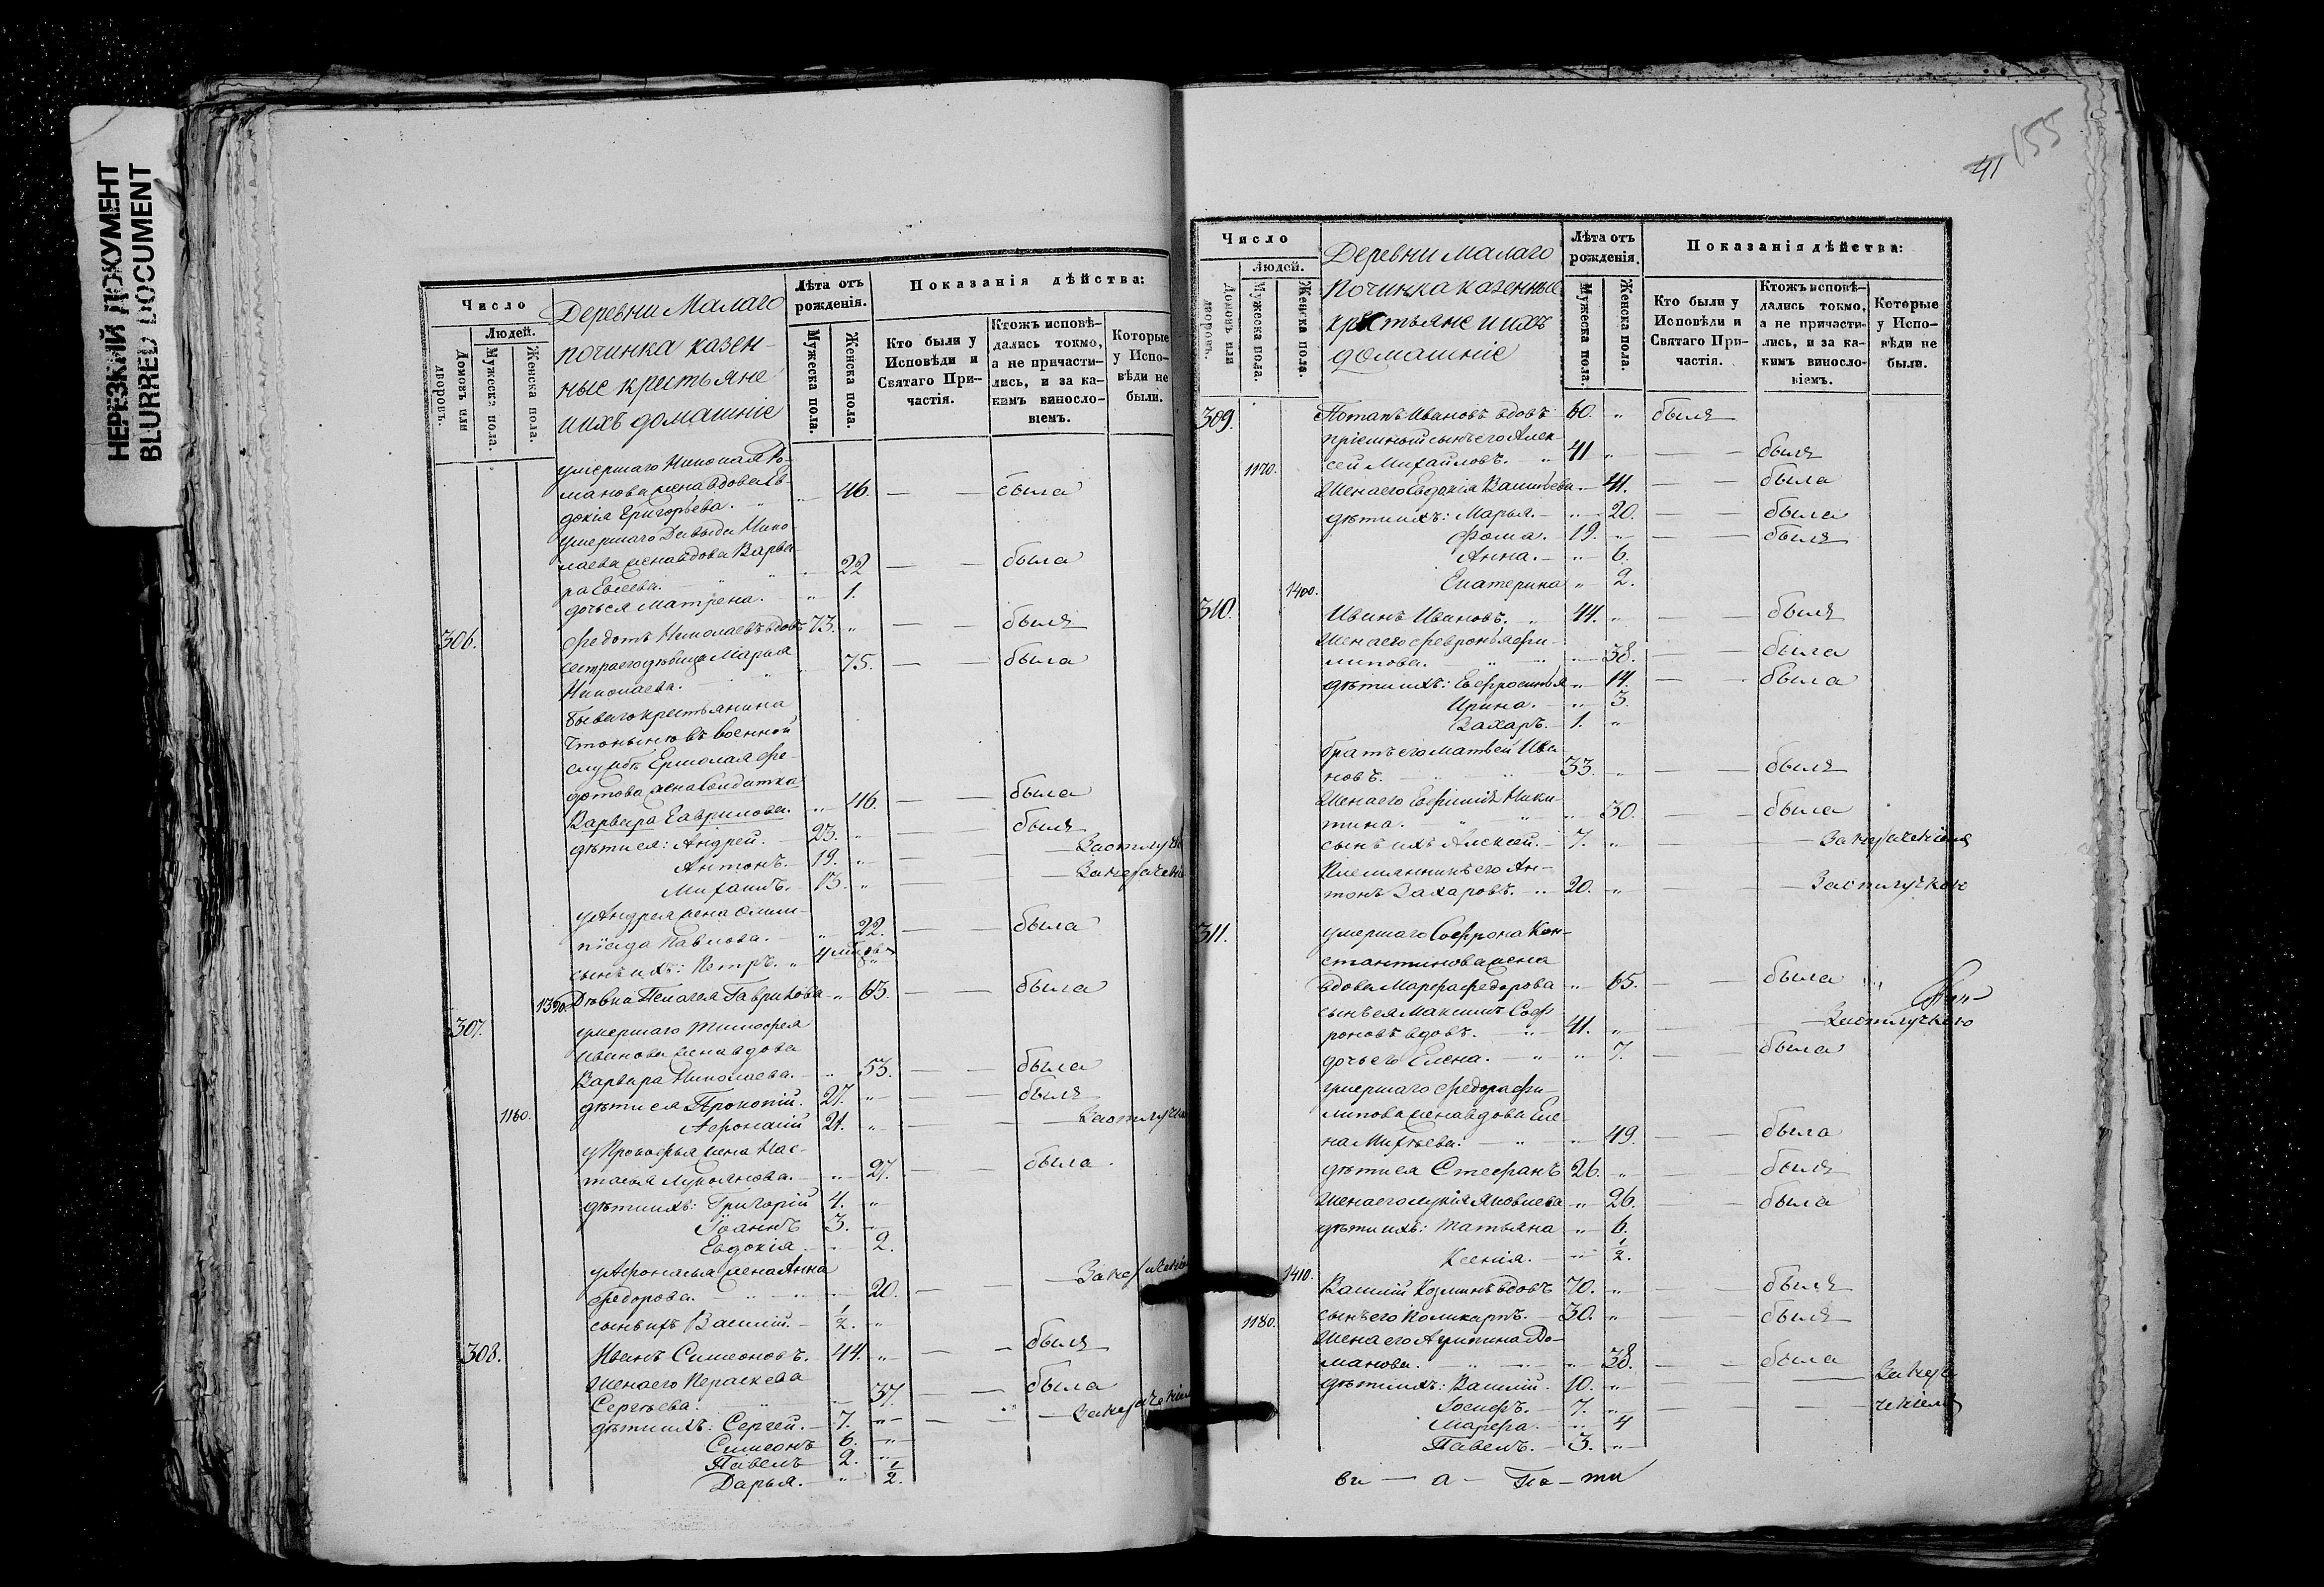 НЕРЕЗКИЙ ДОКУМЕНТ
BLURRED DOCUMENT
Число
Людей.
Домовъ или дворовъ.
Мужеска пола.
Женска пола.
Деревни Малаго
починка казен-
ные крестьяне
и ихъ домашніе
Лѣта отъ рожденія.
Мужеска пола.
Женска пола.
Показанія дѣйства:
Кто были у Исповѣди и Святаго При-частія.
Ктожъ исповѣ-дались токмо, а не причасти-лись, и за ка-кимъ винословіемъ.
Которые у Испо-вѣди не были.
умершаго Николая Ро-
манова жена вдова Ев-
докія Григорьева. 46. была
умершаго Давыда Нико-
лаева жена вдова Варва-
ра Евсеева. 22 была
дочь ея Матрена. 1.
306. Федотъ Николаевъ вдовъ 73. былъ
сестра его девица Марья
Николаева. 75. была
бывшаго крестьянина
что ныне въ военной
службѣ Ермолая Фе-
дотова жена солдатка
Варвара Гаврилова. 46. была
дѣти ея: Андрей. 23. былъ
Антонъ. 19. За отлуч
Михаилъ. 13.
у Андрея жена Олим-
піада Павлова. 22. была
сынъ ихъ: Петръ.
1390. Дѣвка Пелагея Гаврилова 63. была
307. умершаго Тимофея
Иванова жена вдова
Варвара Николаева. 53. была
дѣти ея Прокопій. 27. былъ
1160. Афонасій 21. За отлуч
у Прокофья жена Нас-
тасья Лукоянова. 27. была
дѣти ихъ: Григорій 4.
Іоаннъ 3.
Евдокія 2.
у Афонасья жена Анна
Федорова. 20.
сынъ ихъ Василій. 1/2.
308. Иванъ Симеоновъ. 44. былъ
Жена его Пераскева
Сергѣева. 37. была
дѣти ихъ: Сергей. 7.
Симеонъ 6.
Павелъ 2.
Дарья. 1/2.
41 155
Число
Людей.
Домовъ или дворовъ.
Мужеска пола.
Женска пола.
Деревни Малаго
починка казенные
крестьяне и ихъ
домашніе
Лѣта отъ рожденія.
Мужеска пола.
Женска пола.
Показанія дѣйства:
Кто были у Исповѣди и Святаго При-частія.
Ктожъ исповѣ-дались токмо, а не причасти-лись, и за ка-кимъ винословіемъ.
Которые у Испо-вѣди не были.
309. Потапъ Ивановъ вдовъ 60. былъ
пріемный сынъ его Алек-
1170. сей Михайловъ. 41 былъ
Жена его Евдокія Васильева 41. была
дѣти ихъ: Марья. 20. была
Фома. 19. былъ
Анна. 6.
1400. Екатерина 2.
310. Иванъ Ивановъ. 44. былъ
Жена его Февронья Фи-
липова. 38. была
дѣти ихъ: Евфросинья 14. была
Ирина. 3.
Захаръ. 1.
братъ его Матвей Ива-
новъ. 33. былъ
Жена его Евфимія Ники-
тина. 30. была
сынъ ихъ Алексей. 7.
Племянникъ его Ан-
тонъ Захаровъ. 20. За отлучкою
311. умершаго Софрона Кон-
стантинова жена
вдова Марфа Федорова 65. была
сынъ ея Максимъ Соф-
роновъ вдовъ. 41. За отлучкою
дочь его Елена. 7. была
умершаго Федора Фи-
липова жена вдова Еле-
на Михѣева. 49. была
дѣти ея Стефанъ 26. былъ
Жена его Лукія Яковлева 26. была
дѣти ихъ: Татьяна 6.
Ксенія. 1/2.
1410. Василій Козминъ вдовъ 70. былъ
1180. сынъ его Поликарпъ. 30. былъ
Жена его Агрипина Ро-
манова. 38. была
дѣти ихъ: Василій. 10.
Іосифъ. 7.
Марфа. 4
Павелъ. 3.